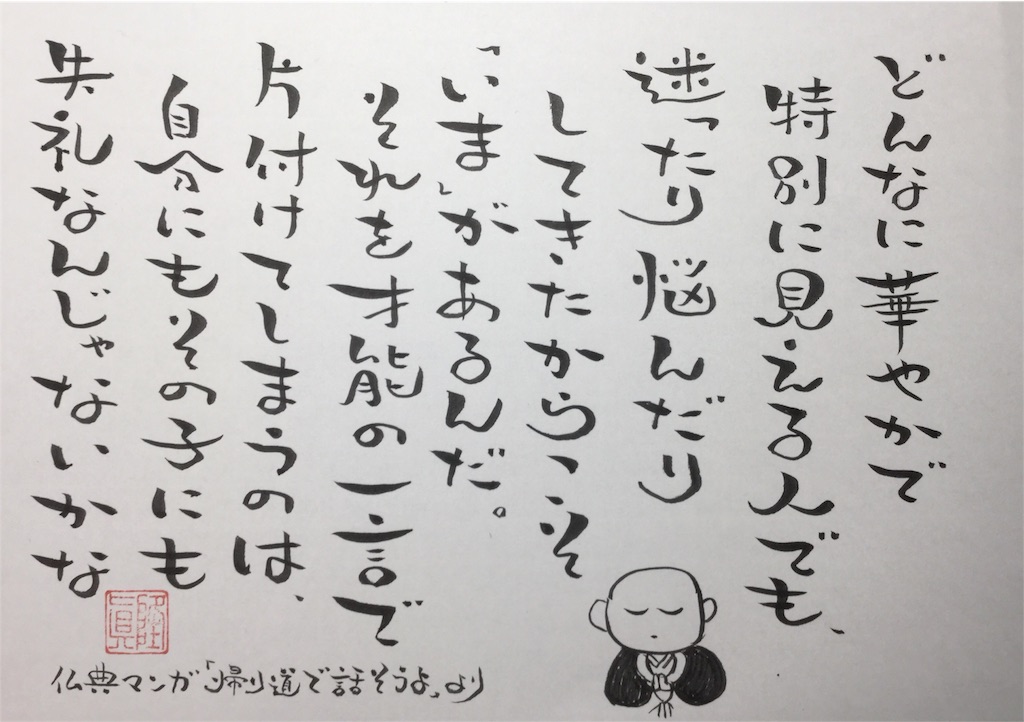 どんなに華やかで
特別に見える人でも、
迷ったり悩んだり
してきたからこそ
「いま」があるんだ。
それを才能の一言で
片付けてしまうのは、
自分にもその子にも
失礼なんじゃないかな
仏典マンガ「帰り道で話そうよ」より